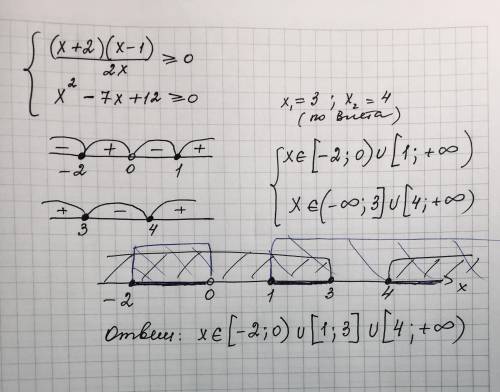 (x+2)(x-1)/2x ⩾ 0
x² - 7x + 12 ⩾ 0
x₁ = 3 ; x₂ = 4
(по Виета)
- + - +
-2 0 1
x ∈ [-2; 0) ∪ [1; +∞)
+ - +
3 4
x ∈ (-∞; 3] ∪ [4; +∞)
-2 0 1 3 4 x
Ответ: x ∈ [-2; 0) ∪ [1; 3] ∪ [4; +∞)